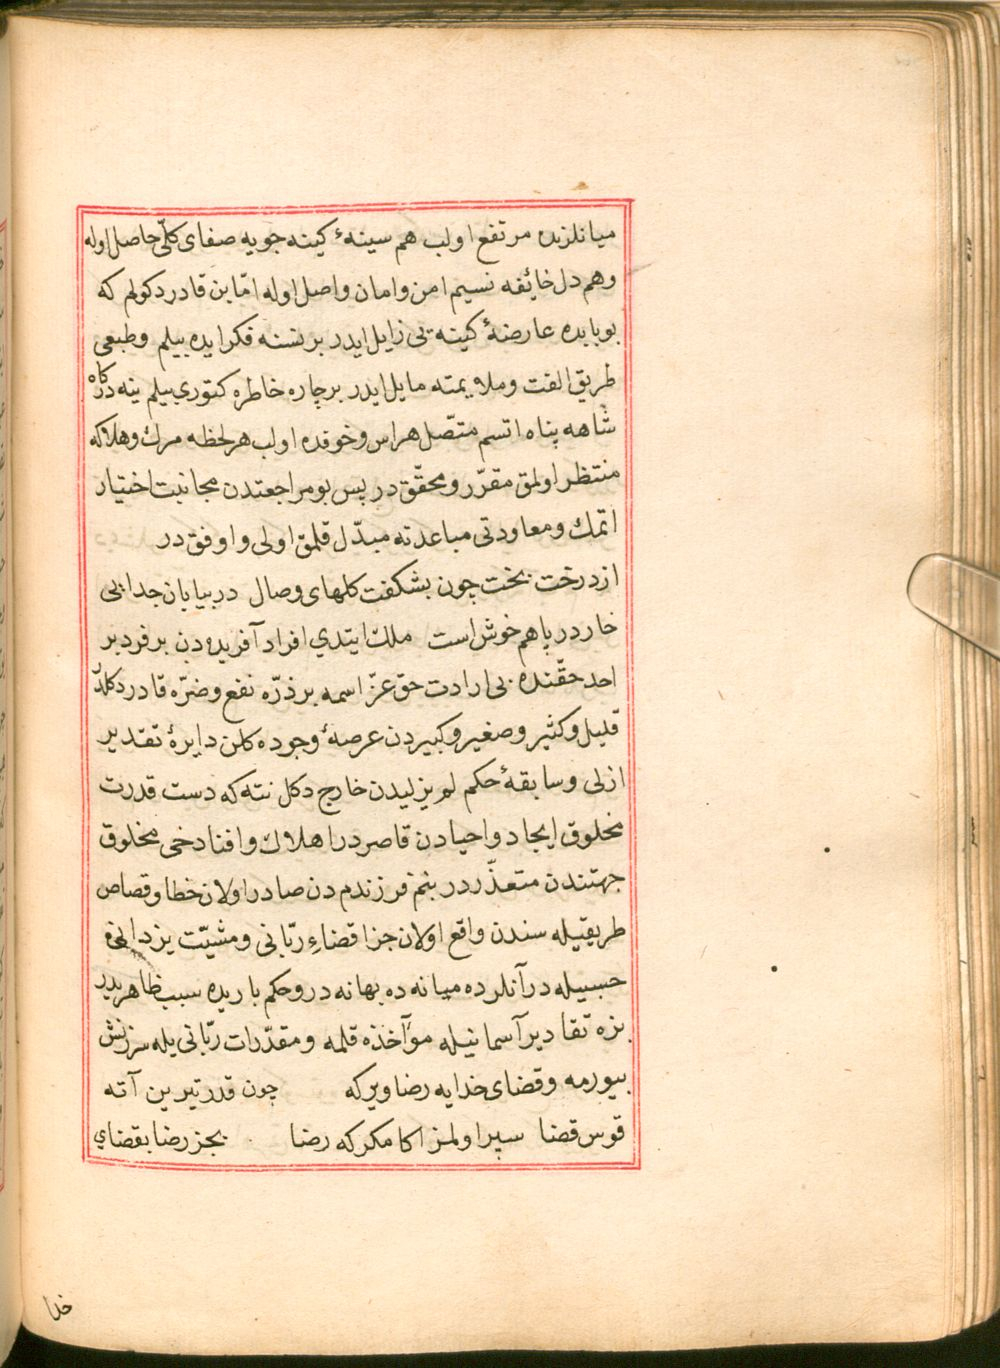 میانلزده مرتفع اولب هم سینهٔ کینه جویه صفای کلّی حاصل اوله
وهم دل خائفه نسیم امن وامان واصل اوله امّا بن قادر دکولم که
بو بابده عارضهٔ کینه یی زایل ایدر بر نسنه فکر ایده بیلم وطبعی
طریق الفت وملایمته مایل ایدر بر چاره خاطره کتوری بیلم ینه درکاه
شاهه پناه اتسم متّصل هراس وخوفده اولب هر لحظه مرک وهلاکه
منتظر اولمق مقرّر ومحقّق در پس بو مراجعتدن مجانبت اختیار
اتمک ومعاودتی مباعدته مبدّل قلمق اولی واوفق در
از درخت بخت چون بشکفت کلهای وصال در بیابان جدایی
خار در پا هم خوش است ملک ایتدی افراد آفریده دن بر فرد بر
احد حقّنده بی ارادت حق عزّ اسمه بر ذرّه نفع وضرّه قادر دکلدر
قلیل وکثیر وصغیر وکبیردن عرصهٔ وجوده کلن دایرهٔ تقدیر
ازلی وسابقهٔ حکم لم یزلیدن خارج دکل نته که دست قدرت
مخلوق ایجاد واحیادن قاصردر اهلاک وافنا دخی مخلوق
جهتندن متعذّردر بنم فرزندم دن صادر اولان خطا وقصاص
طریقیله سندن واقع اولان جزا قضاء ربّانی ومشیّت یزدانی
حسبیله در آنلرده میانه ده بهانه در وحکم باریده سبب ظاهریدر
بزه تقادیر آسمانیله مؤآخذه قلمه ومقدّرات ربّانی یله سرزنش
بیورمه وقضای خدایه رضا ویر که چون قدر تیرین آته
قوس قضا سپر اولمز اکا مکر که رضا بجز رضا بقضای
خدا